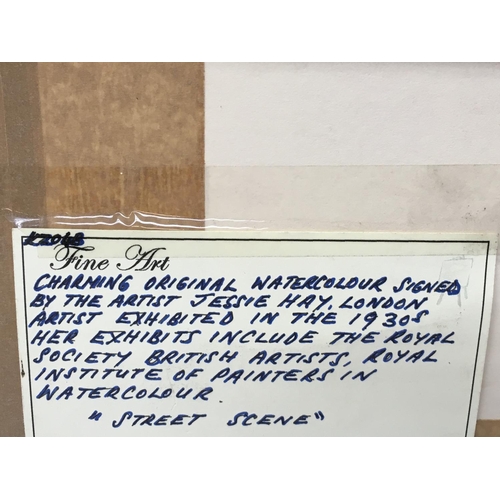 Fine Art
CHARMING ORIGINAL WATERCOLOUR SIGNED
BY THE ARTIST JESSIE HAY, LONDON
ARTIST EXHIBITED IN THE 1930S
HER EXHIBITS INCLUDE THE ROYAL
SOCIETY BRITISH ARTISTS, ROYAL
INSTITUTE OF PAINTERS IN
WATERCOLOUR
"STREET SCENE"